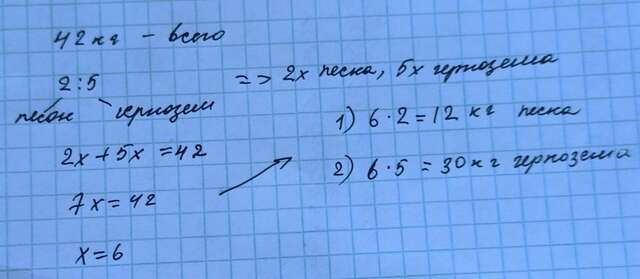 42 кг – всего
2:5
песок чернозем
2x+5x=42
7x=42
x=6
=> 2x песка, 5x чернозема
1) 6·2=12 кг песка
2) 6·5=30 кг чернозема